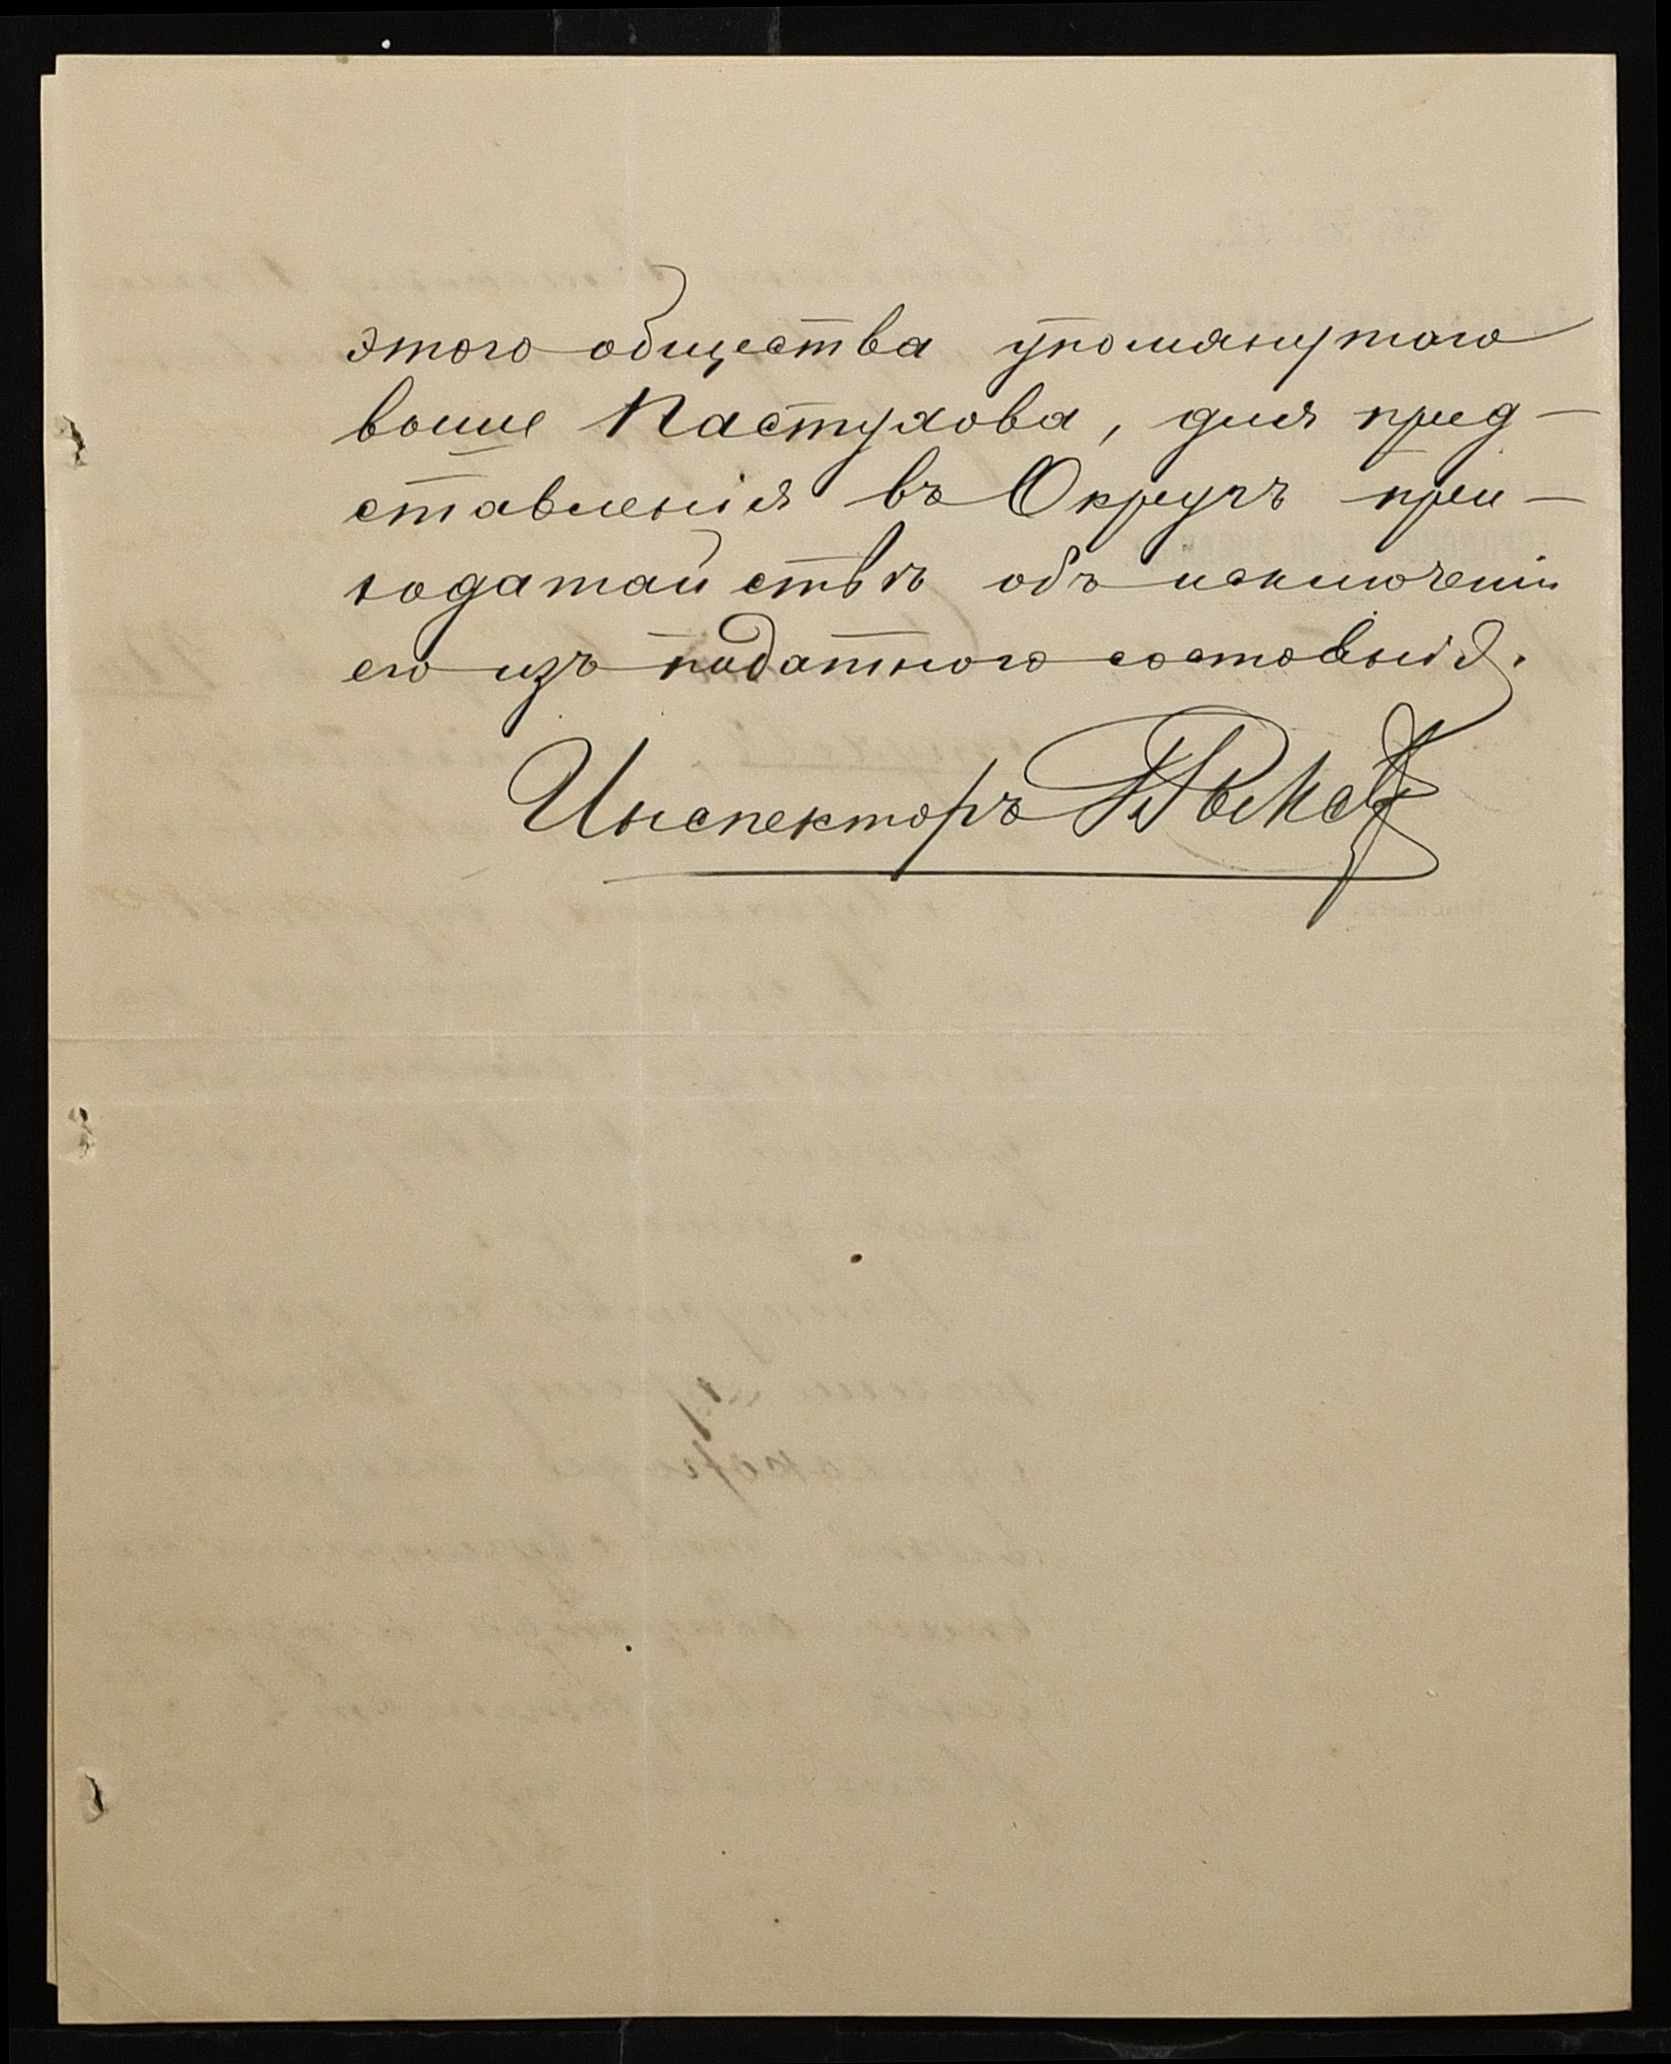 этого общества упомянутаго
выше Пастухова, для пред-
ставленія въ Округъ при
ходатайствѣ объ исключеніи
его изъ податного состоянія.
Инспекторъ